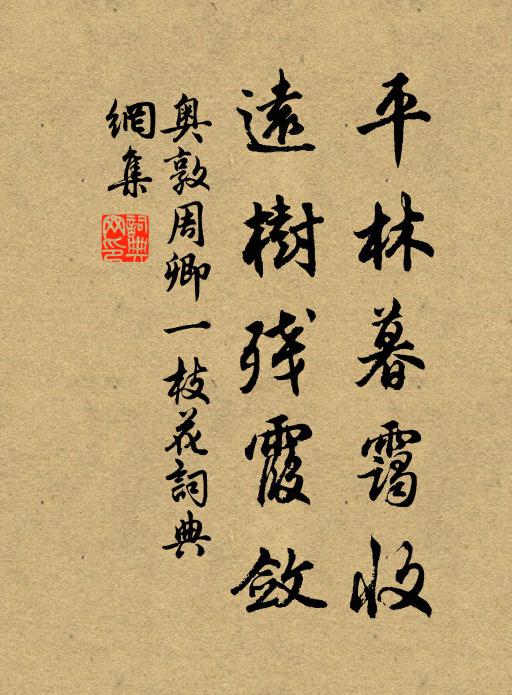 平林暮靄收
遠樹殘霞斂
奥敦周卿一枝花詞典
網集
詞典網印